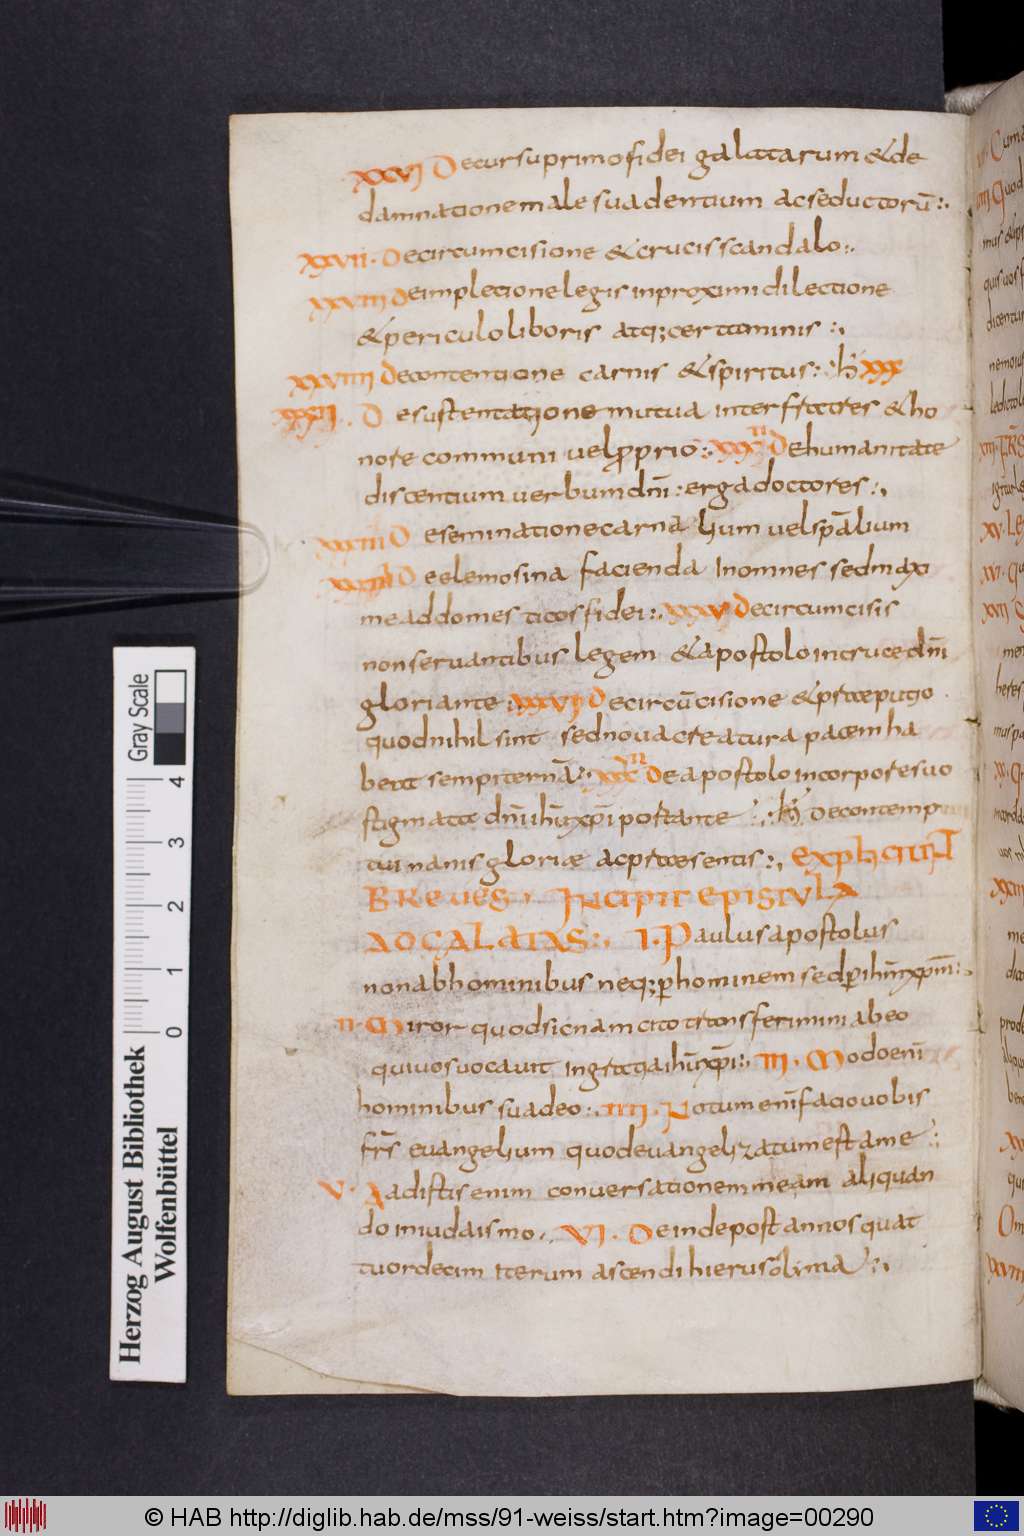 XXVI Decursuprimofidei galatarum &de
damnationemalesuadentium acseductorū:.
XXVII. Decircumcisione &crucisscandalo:.
XXVIII Deimpletionelegisinproximidilectione
&periculoliboris atq;certaminis:,
XXVIIII Decontentione carnis &spiritus:. XXX
Desustentatione mutua interfratres &ho
nore communi velproprio:. Dehumanitate
discentium verbumdn̄i:ergadoctores:,
XXXIII Deseminationecarna lium velspāl̄ium
Deelemosina facienda Inomnes sedmaxi
meaddomesticosfidei:. XXXV Decircumcisis
nonservantibus legem &apostolo incrucedn̄i
gloriante:. XXXVI Decircūcisione &praeputio
quodnihilsint sednovacreatura pacemha
beat sempiternā:. XXXVII Deapostolo incorporesuo
stigmata dn̄i ih̄uxp̄i portante:. decontemp
tui nanisgloriae acpraesentis:, expliciunt
BREVES. INCIPIT EPISTVLA
AD GALATAS:. I. Paulusapostolus
nonabhominibus neq;perhominem sedperih̄mxp̄m:.
II. Miror quodsicnamcitotransferimini abeo
quivosvocavit ingratiaih̄uxp̄i:. III. Modoenī
hominibus suadeo:. IIII. Notumenīfaciovobis
fr̄s evangelium quodevangelizatumestame:.
V. Audistisenim conversationemmeam aliquan
do iniudaismo. VI. Deindepostannosquat
tuordecim iterum ascendihierusolyma:,
Gray Scale
0 1 2 3 4
Herzog August Bibliothek
Wolfenbüttel
© HAB http://diglib.hab.de/mss/91-weiss/start.htm?image=00290